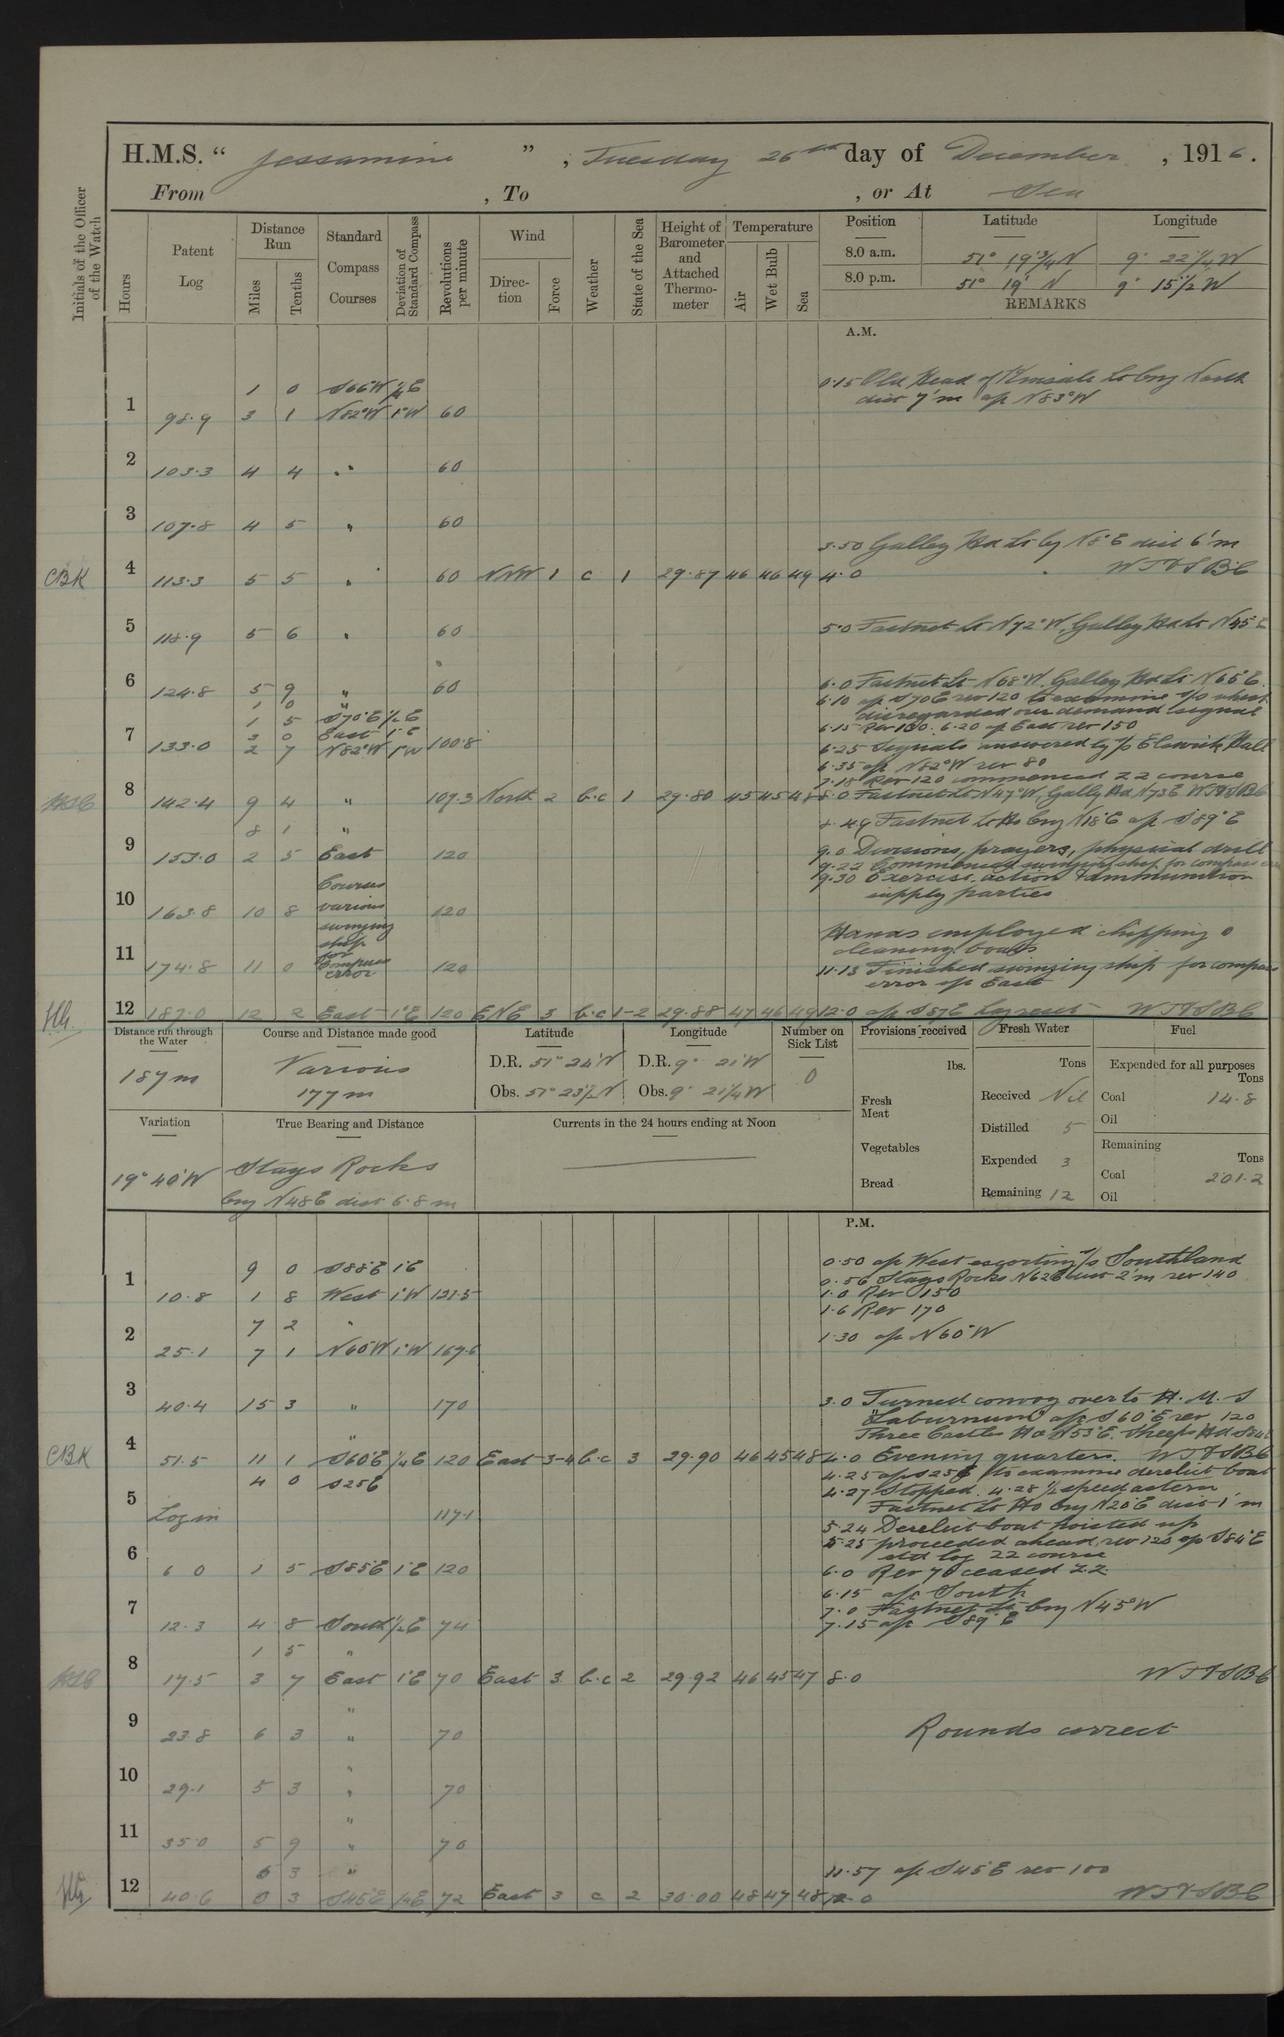 H.M.S. “ Jessamine ” , Tuesday 26th day of December , 1916 .
From , To , or At Sea
Initials of the Officer of the Watch
Hours
Patent Log
Distance Run
Miles
Tenths
Standard Compass Courses
Deviation of Standard Compass
Revolutions per minute
Wind
Direction
Force
Weather
State of the Sea
Height of Barometer and Attached Thermometer
Temperature
Air
Wet Bulb
Sea
Position Latitude Longitude
8.0 a.m. 51° 19¾' N 9° 22¼' W
8.0 p.m. 51° 19' N 9° 15½' W
REMARKS
A.M.
1 0 S66°W ½°E 0.15 Old Head of Kinsale Lt brg North
1 98.9 3 1 N82°W 1°W 60 dist 7'm a/c N83°W
2 103.3 4 4 " 60
3 107.8 4 5 " 60
3.50 Galley Hd Lt brg N8°E dist 6'm
CBK 4 113.3 5 5 " 60 NNW 1 c 1 29.87 46 46 49 4.0
5 118.9 5 6 " 60 5.0 Fastnet Lt N72°W, Galley Hd Lt N45°E
6 124.8 5 9 " 60 6.0 Fastnet Lt N68°W. Galley Hd Lt N65°E.
1 0 " 6.10 a/c S70°E rev 120 to examine s/s which
1 5 S70°E ½°E disregarded our demand signal
3 0 East 1°E 6.15 Rev 130. 6.20 a/c East rev 150
7 133.0 2 7 N82°W 1°W 100.8 6.25 Signals answered by s/s Elswick Hall
6.35 a/c N82°W rev 80
7.18 Rev 120 commenced ZZ course
8 142.4 9 4 " 109.3 North 2 b.c 1 29.80 45 45 48 8.0 Fastnet Lt N47°W, Gally Hd N73°E
8 1 " 8.49 Fastnet Lt Ho brg N18°E a/c S89°E
9 153.0 2 5 East 120 9.0 Divisions, prayers, physical drill
9.22 Commenced swinging ship for compass error
Courses 9.30 Exercise action & ammunition
10 163.8 10 8 various 120 supply parties
swinging Hands employed chipping &
ship cleaning boats
11 174.8 11 0 for Compass error 120 11.13 Finished swinging ship for compass
error a/c East
12 187.0 12 2 East 1°E 120 ENE 3 b.c 1-2 29.88 47 46 49 12.0 a/c S57°E Log reset
Distance run through the Water
187 m
Course and Distance made good
Various
177 m
Latitude
D.R. 51° 24' N
Obs. 51° 23½' N
Longitude
D.R. 9° 21' W
Obs. 9° 21¼' W
Number on Sick List
0
Provisions received
lbs.
Fresh Meat
Vegetables
Bread
Fresh Water
Tons
Received Nil
Distilled 5
Expended 3
Remaining 12
Fuel
Expended for all purposes
Tons
Coal 14.8
Oil
Remaining
Tons
Coal 201.2
Oil
Variation
19° 40' W
True Bearing and Distance
Stags Rocks
brg N48E dist 6.8 m
Currents in the 24 hours ending at Noon
P.M.
9 0 S88°E 1°E 0.50 a/c West escorting s/s Southland
0.56 Stags Rocks N62°E dist 2'm rev 140
1 10.8 1 8 West 1°W 121.5 1.0 Rev 150
1.6 Rev 170
7 2 " 1.30 a/c N60°W
2 25.1 7 1 N60°W 1°W 169.6
3 40.4 15 3 " 170 3.0 Turned convoy over to H.M.S
"Laburnum" a/c S60°E rev 120
Three Castles Hd N53°E. Sheeps Hd
CBK 4 51.5 11 1 S60°E ¼°E 120 East 3-4 b.c 3 29.90 46 45 48 4.0 Evening quarters.
4 0 S25E 4.25 a/c S25E to examine derelict boat
4.27 Stopped. 4.28 ½ speed astern
5 Log in 117.1 Fastnet Lt Ho brg N20°E dist 1'm
5.24 Derelict boat hoisted up
5.25 proceeded ahead, rev 120 a/c S84°E
std log ZZ course
6 6 0 1 5 S85°E 1°E 120 6.0 Rev 70 ceased ZZ.
6.15 a/c South
7.0 Fastnet Lt brg N45°W
7 12.3 4 8 South ½°E 74 7.15 a/c S89°E
1 5 "
8 17.5 3 7 East 1°E 70 East 3 b.c 2 29.92 46 45 47 8.0
9 23.8 6 3 " 70 Rounds correct
10 29.1 5 3 " 70
11 35.0 5 9 " 70
5 3 " 11.57 a/c S45°E rev 100
12 40.6 0 3 S45°E ¼°E 72 East 3 c 2 30.00 48 47 48 12.0